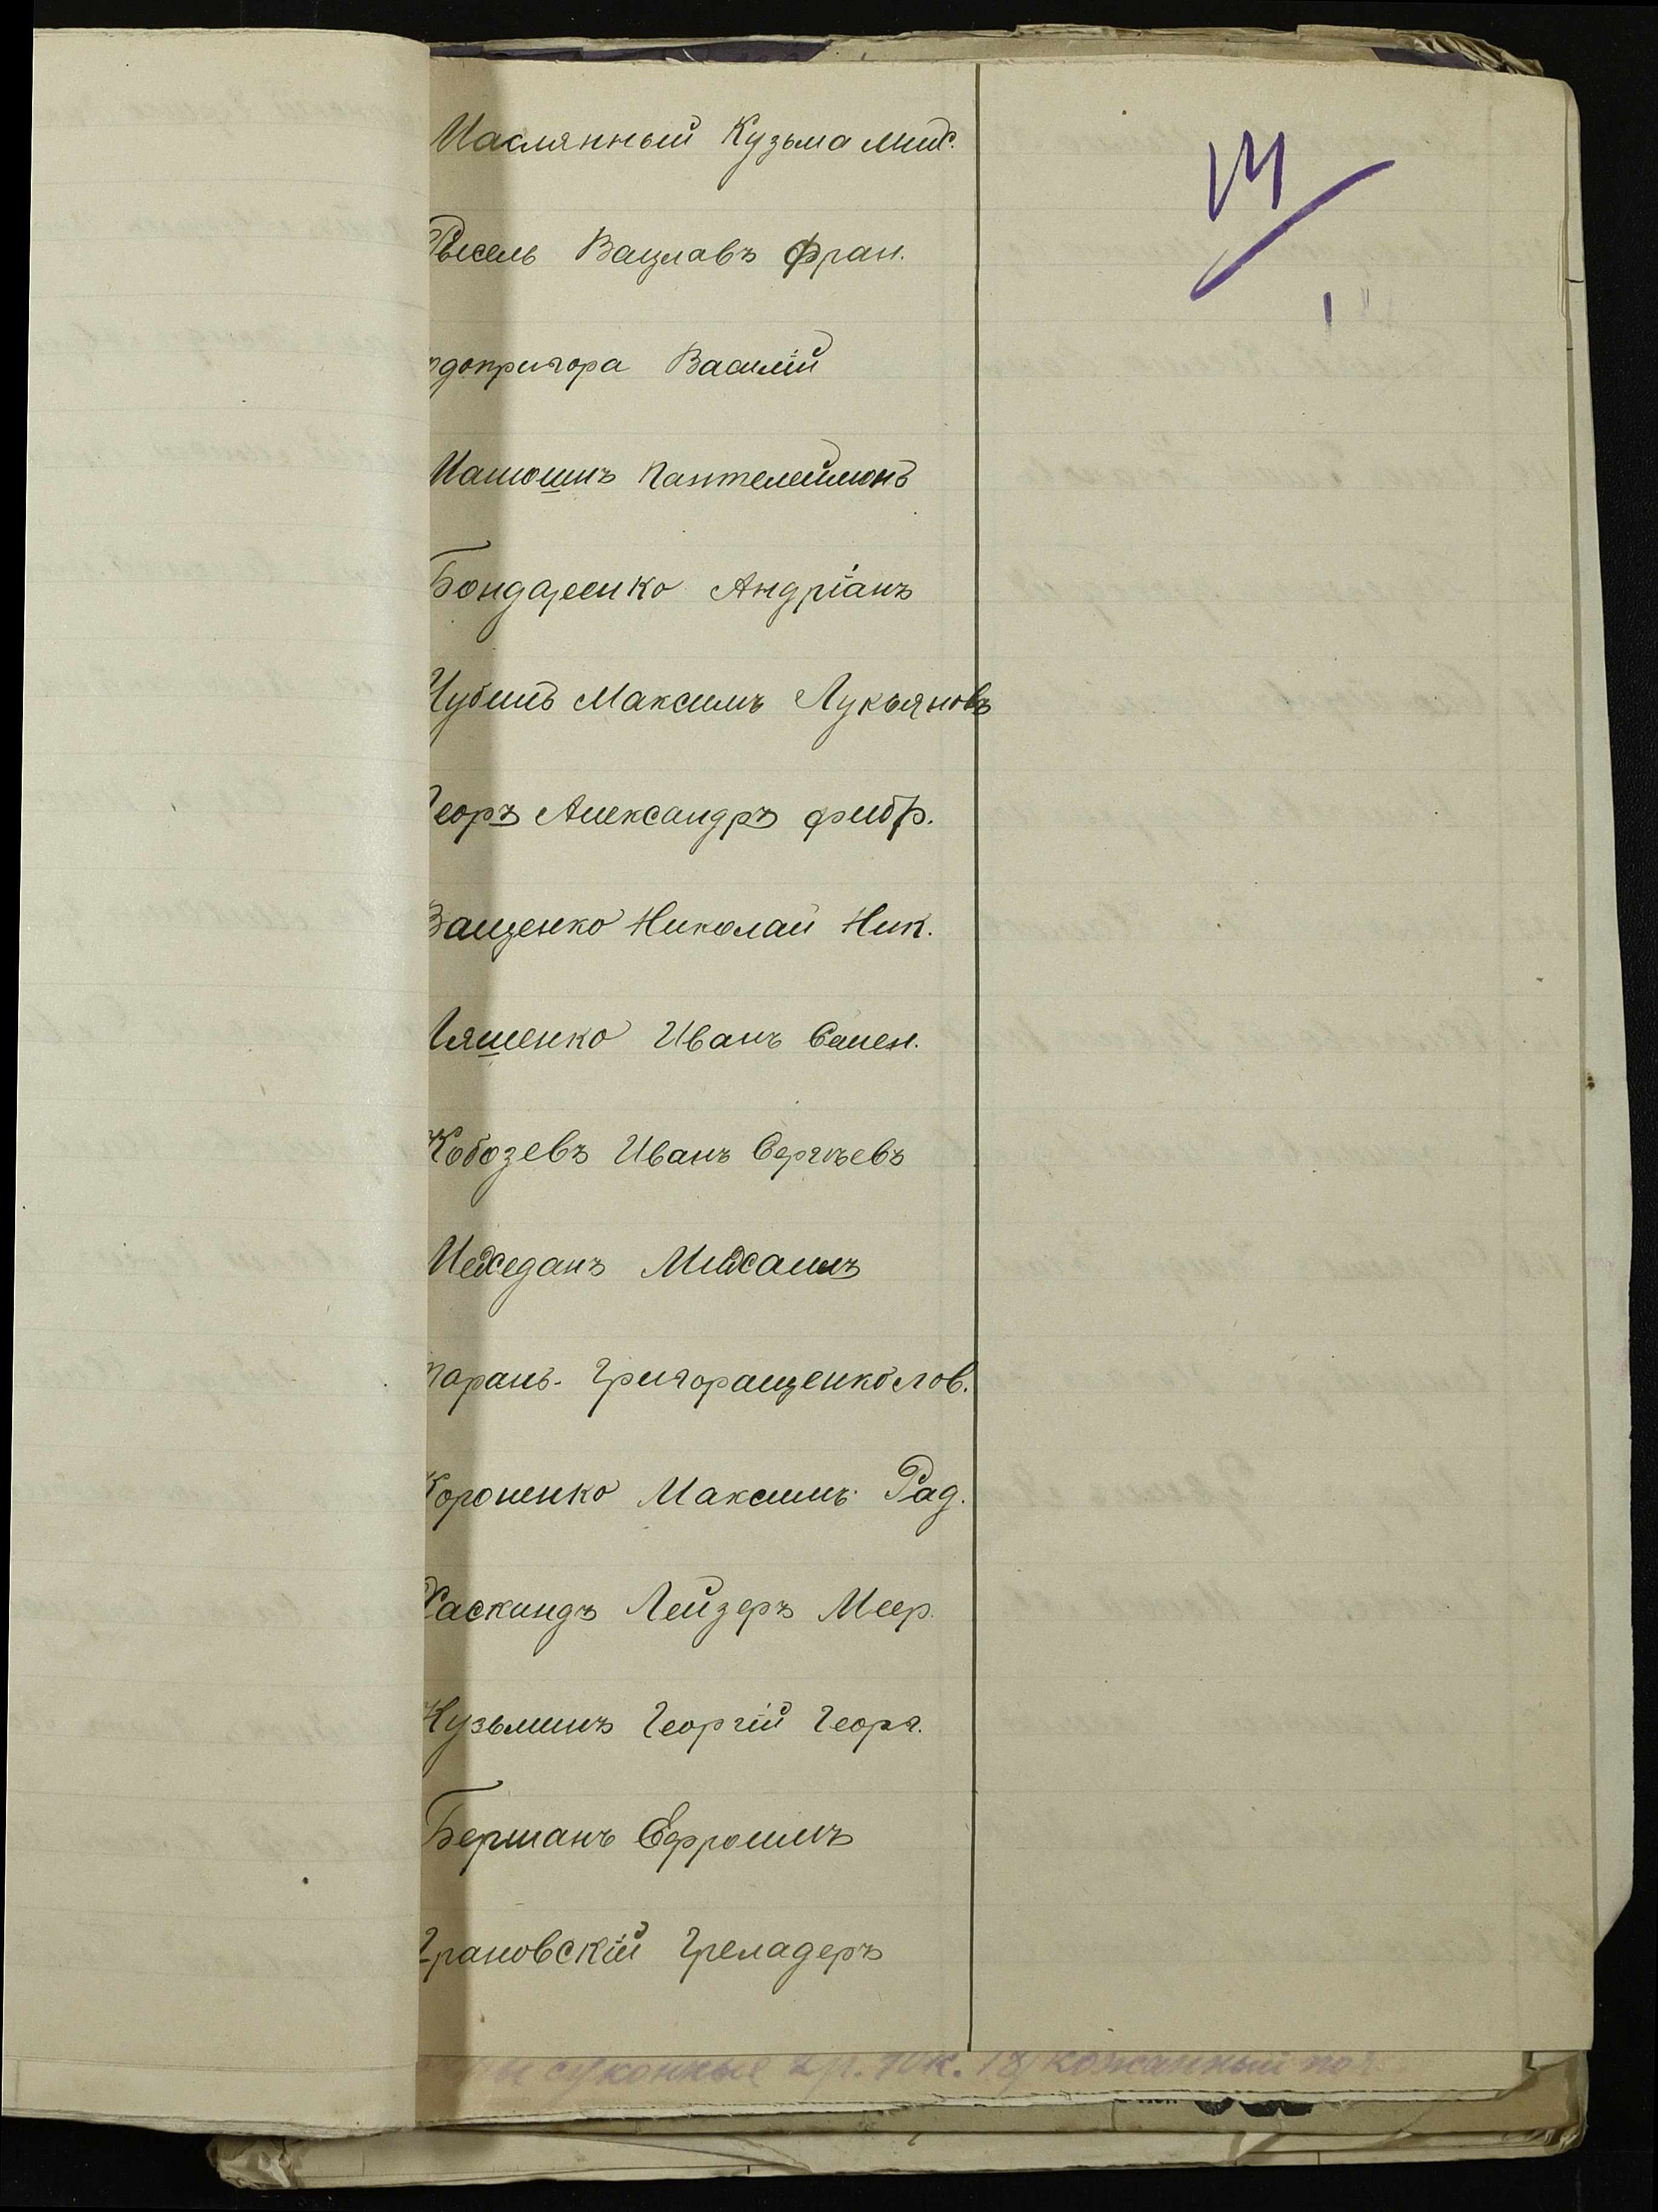 Маслянный Кузьма Мих.
Рыхель Вацлавъ Фран.
одопригора Василій
Матюшинъ Пантелеймонъ
Бондаренко Андріанъ
Чубинъ Максимъ Лукьяновъ
Георъ Александръ
Ващенко Николай Ник.
Ляшенко Иванъ Семен.
Кобозевъ Иванъ Сергѣевъ
Михаилъ
Таранъ-Григоращенко
Короненко Максимъ Рад.
Хаскиндъ Лейзеръ Меер.
Кузьминъ Георгій Георг.
Берманъ Ефроимъ
Грановскій
суконные 2 р. 70 к. 18) кожанный